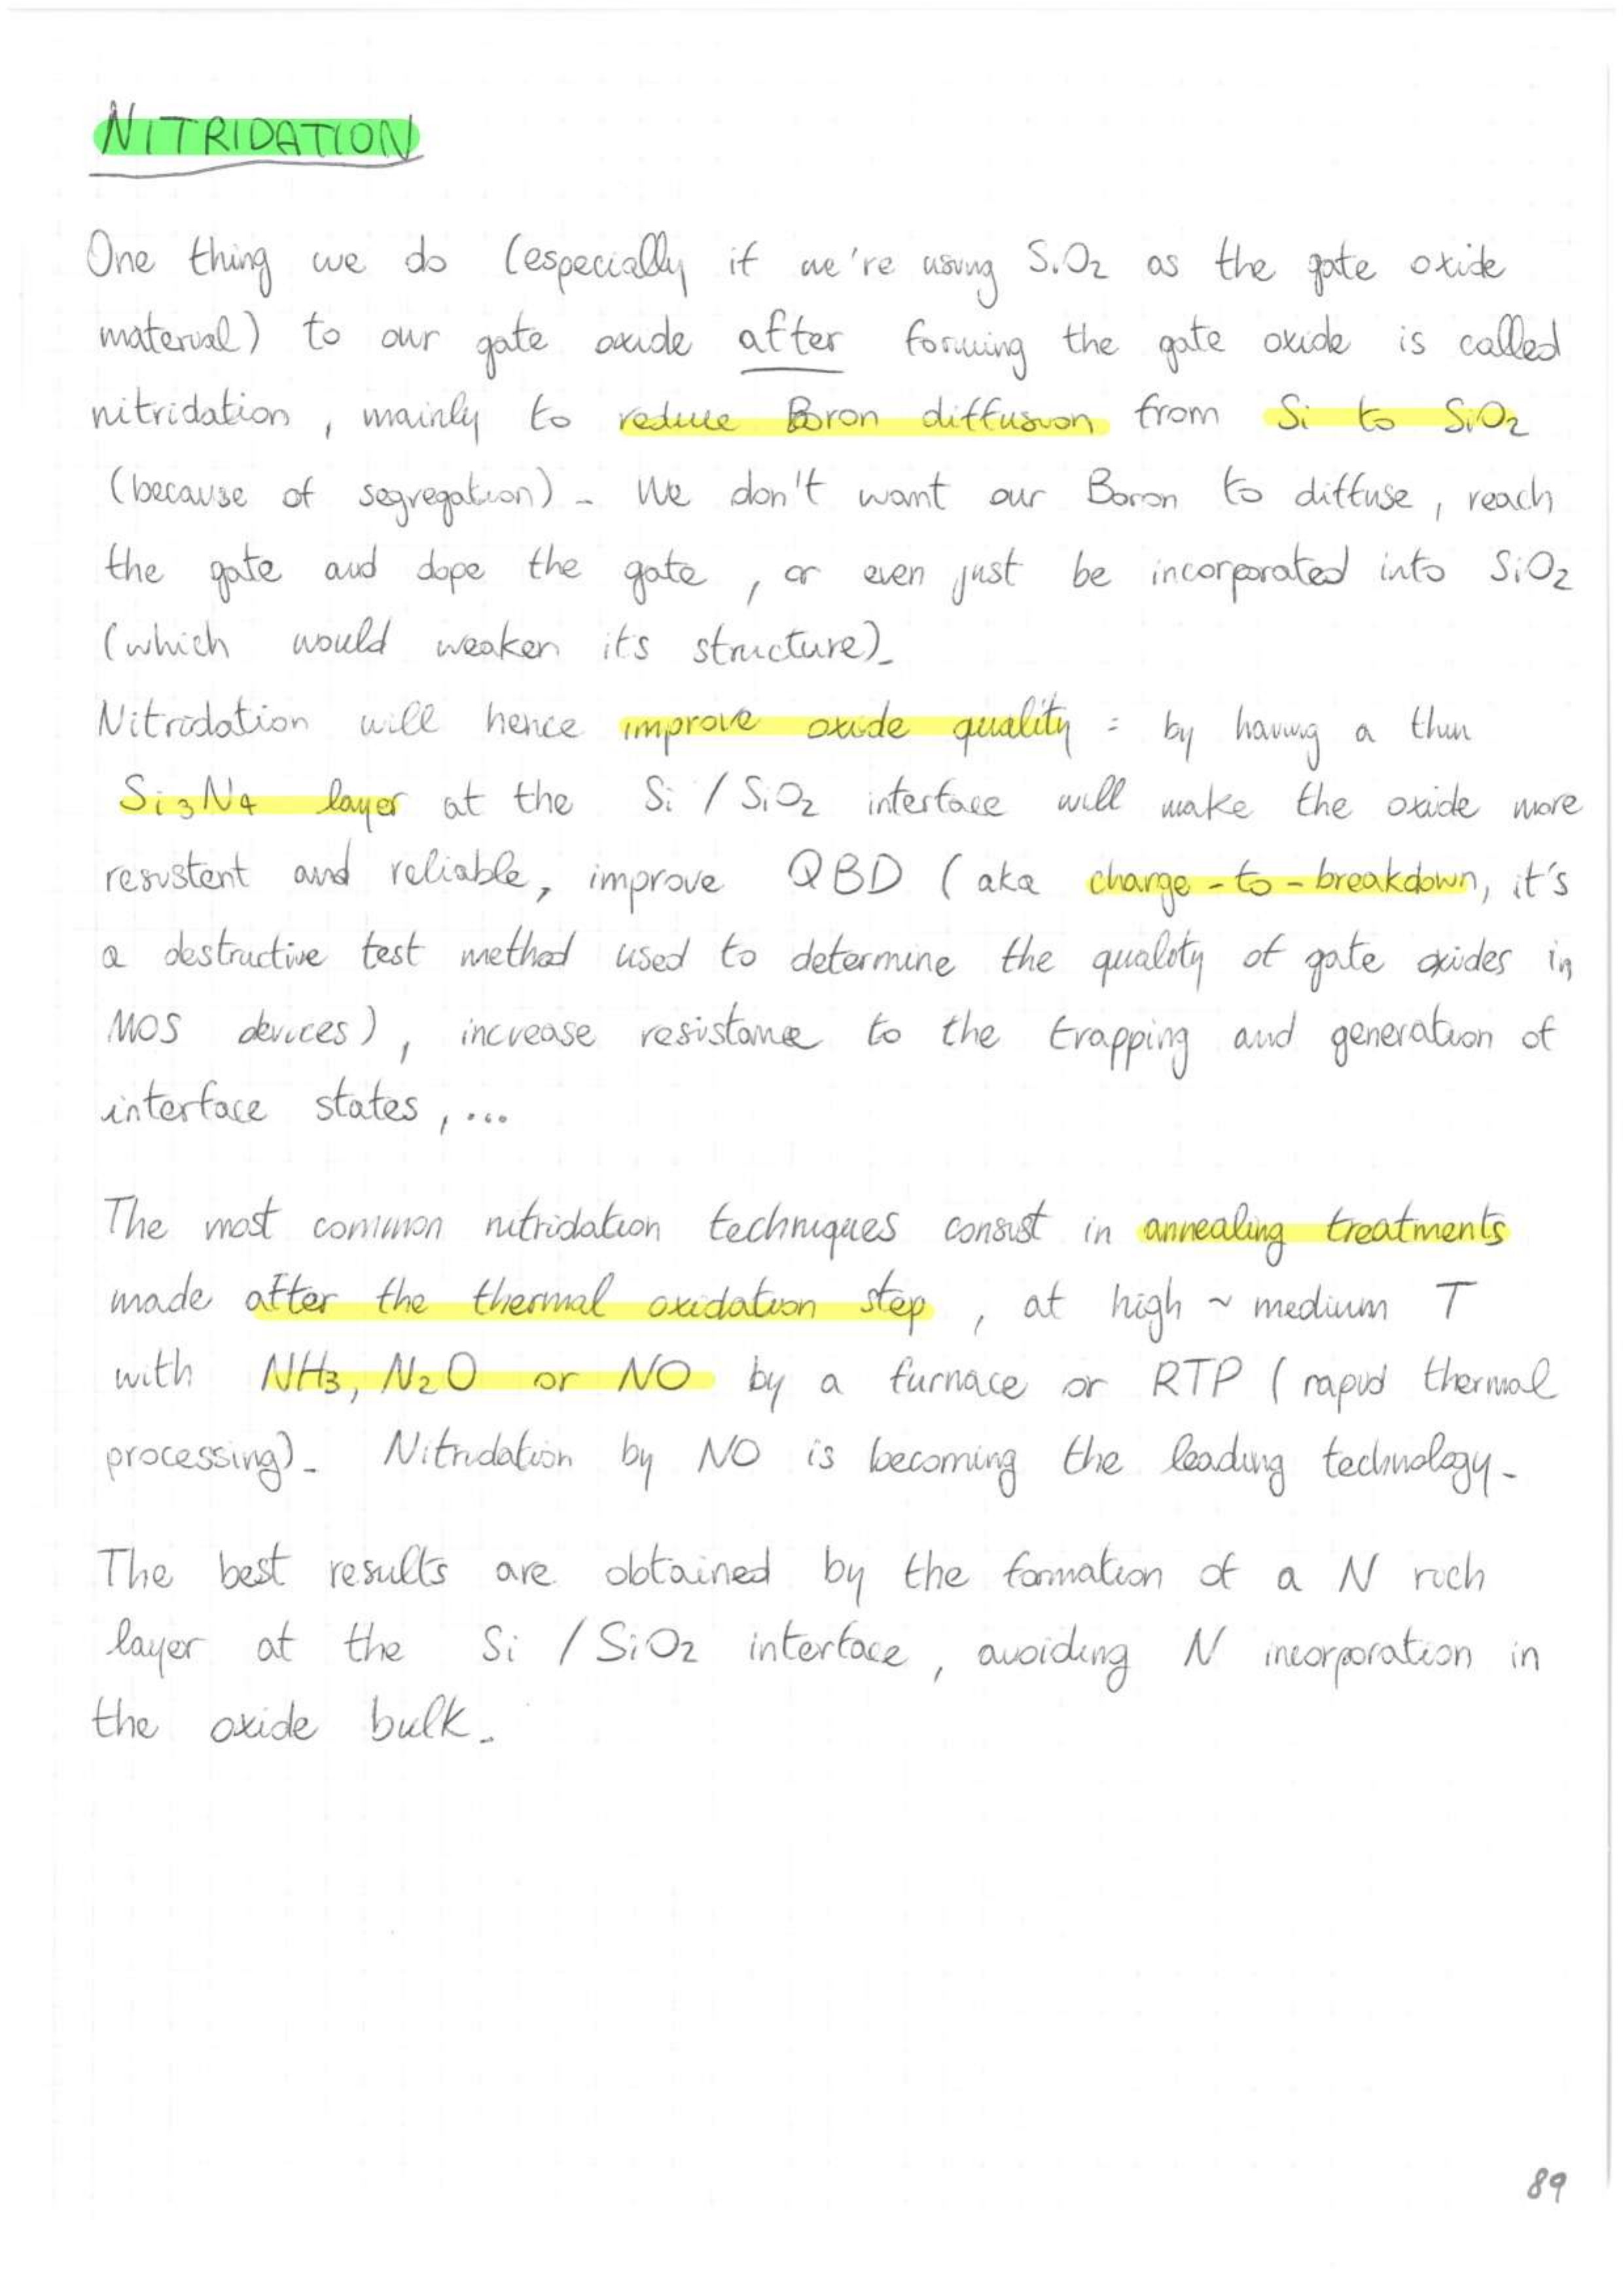 NITRIDATION
One thing we do (especially if we're using SiO2 as the gate oxide
material) to our gate oxide after forming the gate oxide is called
nitridation, mainly to reduce Boron diffusion from Si to SiO2
(because of segregation). We don't want our Boron to diffuse, reach
the gate and dope the gate, or even just be incorporated into SiO2
(which would weaken it's structure).
Nitridation will hence improve oxide quality: by having a thin
Si3N4 layer at the Si/SiO2 interface will make the oxide more
resistent and reliable, improve QBD (aka charge-to-breakdown, it's
a destructive test method used to determine the quality of gate oxides in
MOS devices), increase resistance to the trapping and generation of
interface states, ...
The most common nitridation techniques consist in annealing treatments
made after the thermal oxidation step, at high ~ medium T
with NH3, N2O or NO by a furnace or RTP (rapid thermal
processing). Nitridation by NO is becoming the leading technology.
The best results are obtained by the formation of a N rich
layer at the Si/SiO2 interface, avoiding N incorporation in
the oxide bulk.
89